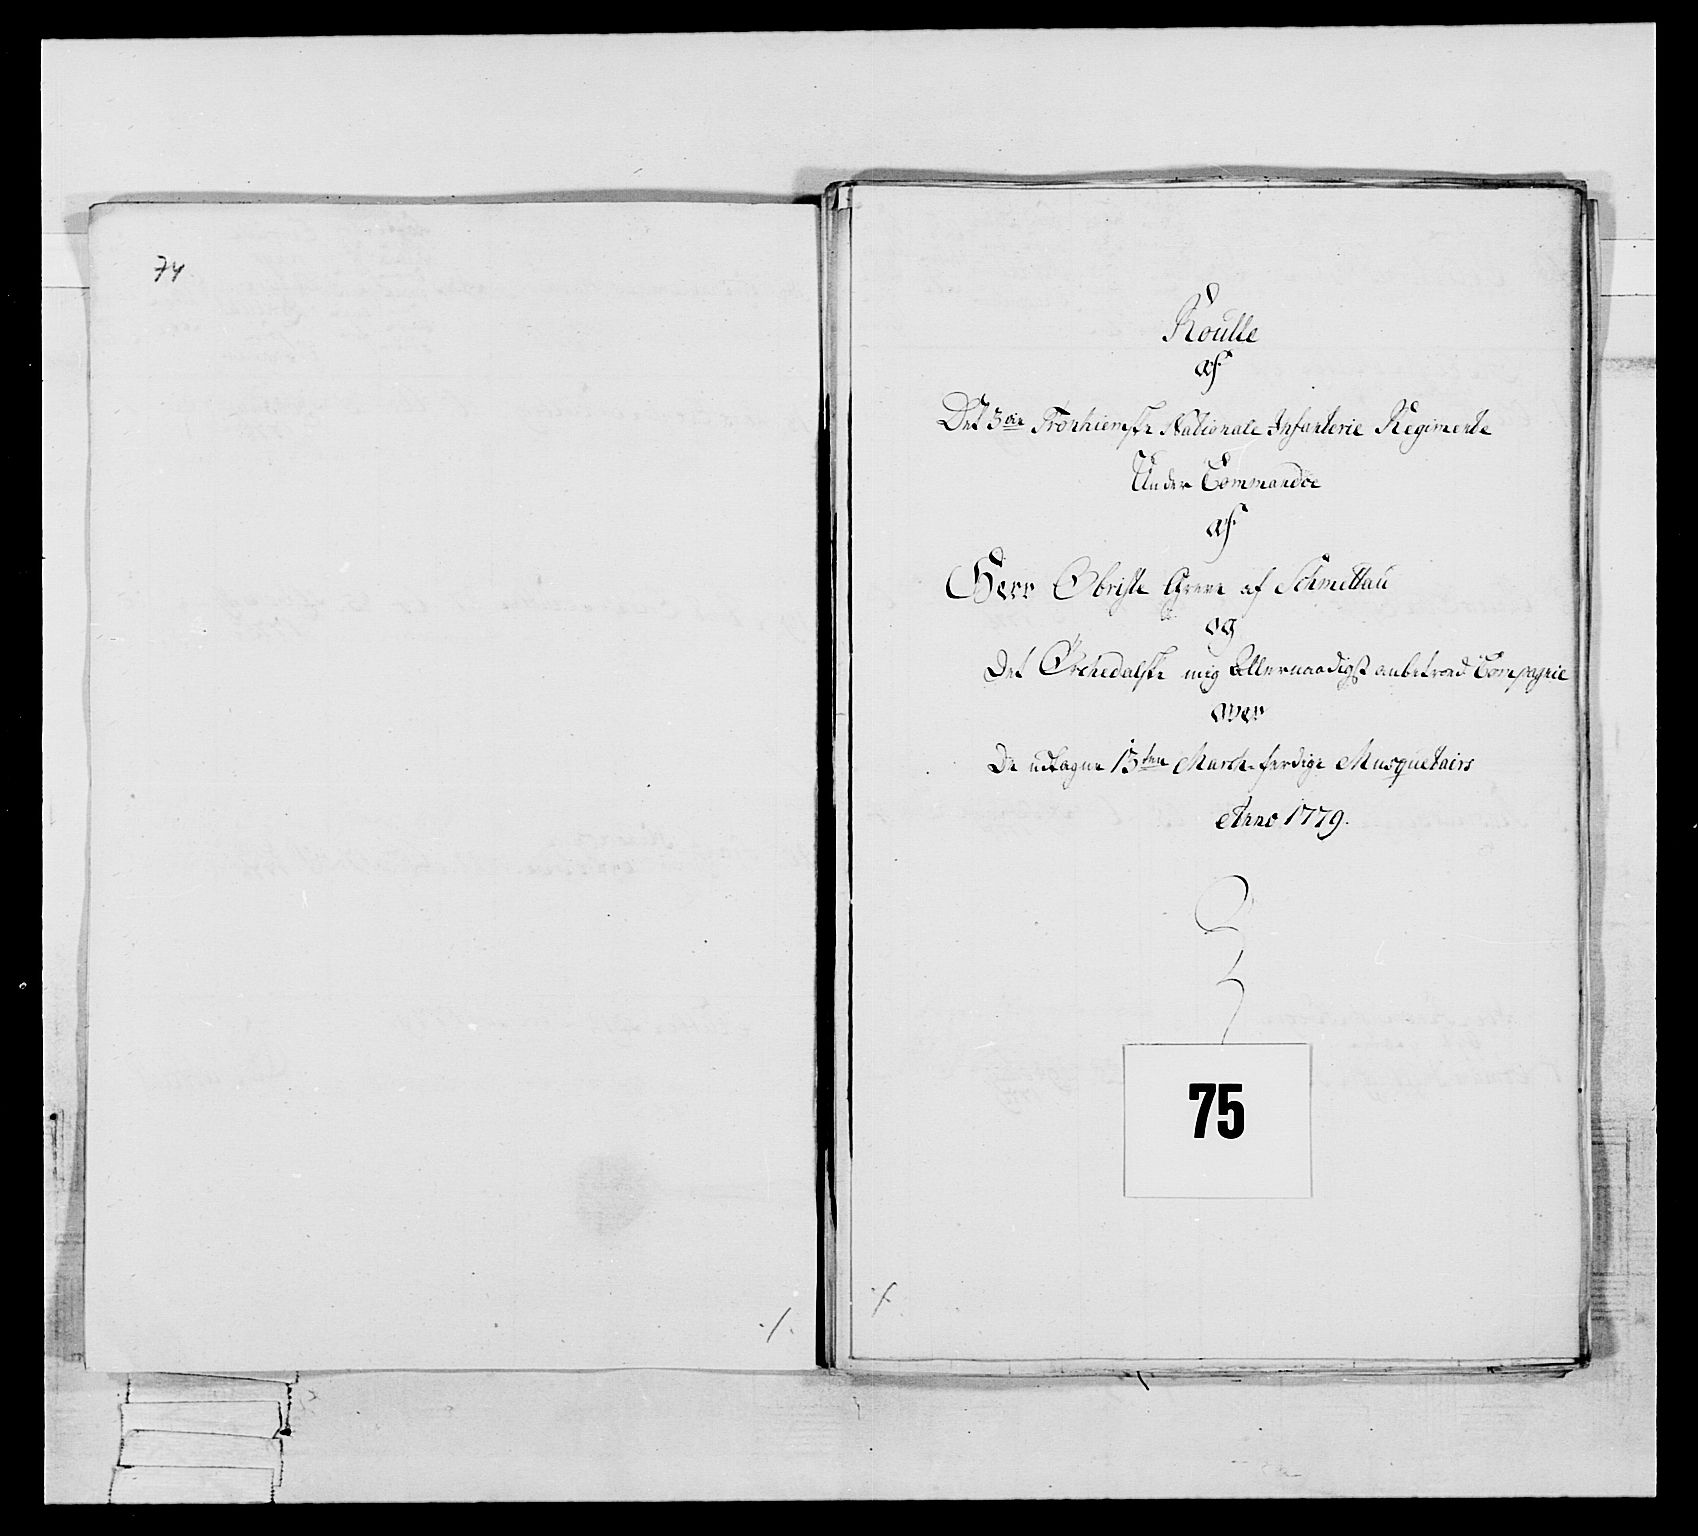 74
Roulle
af
Det 3die Tronhiemske Nationale Infanterie Regimente
Under Commandoe
af
Herr Obriste Greve af Schmettau
og
Det Örchedalske mig Allernaadigst anbetroed Compagnie
over
De udtagne 15ten March-færdige Musquetairs
Anno 1779.
75
./.
./.